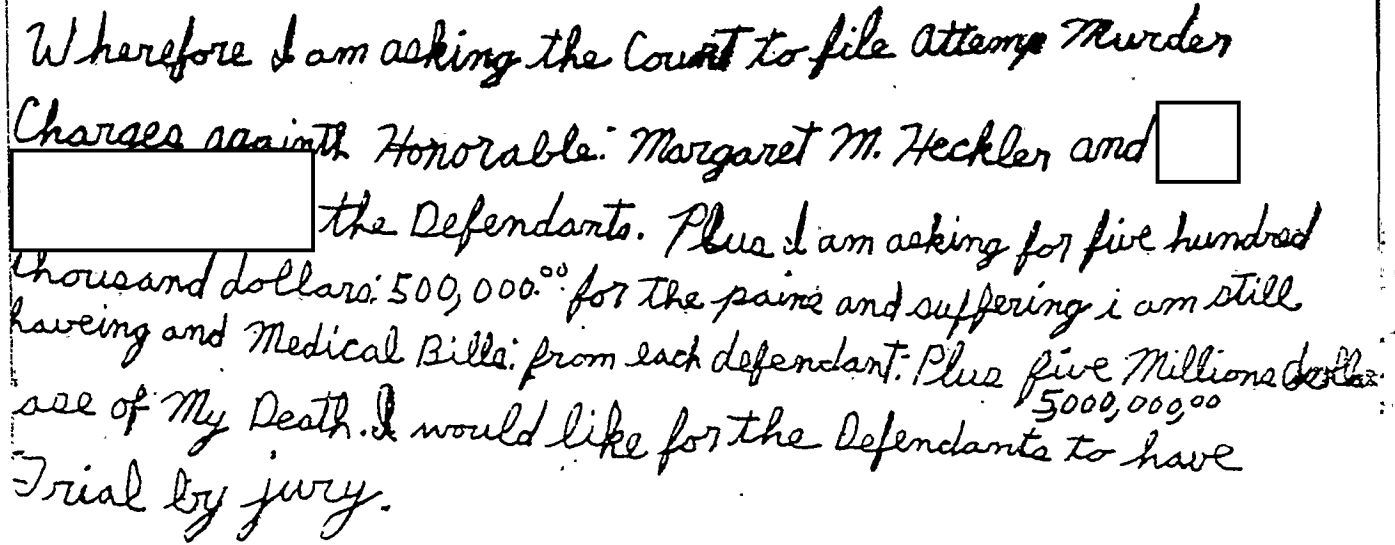 Wherefore I am asking the Court to file attemp Murder
Charges againth Honorable: Margaret M. Heckler and
the Defendants. Plus I am asking for five hundred
thousand dollars: 500,000.00: for the pains and suffering i am still
haveing and Medical Bills: from each defendant: Plus five Millions dollar
5000,000,00
ase of My Death. I would like for the Defendants to have
Trial by jury.